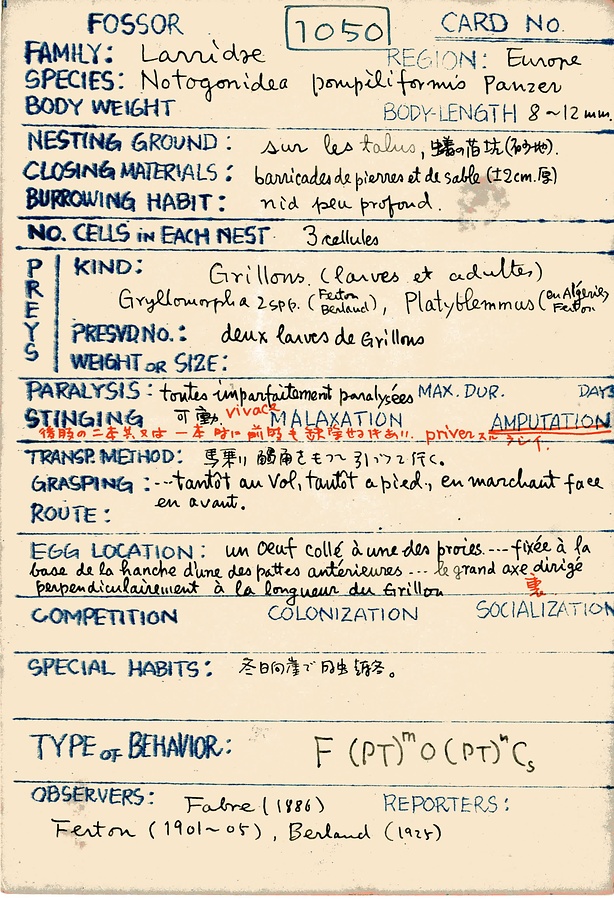 FOSSOR 1050 CARD NO.
FAMILY: Larridae REGION: Europe
SPECIES: Notogonidea pompiliformis Panzer
BODY WEIGHT BODY-LENGTH 8~12 mm.
NESTING GROUND: sur les talus, 蟻の苗坑(砂地).
CLOSING MATERIALS: barricades de pierres et de sable (±2cm.厚)
BURROWING HABIT: nid peu profond.
NO. CELLS in EACH NEST 3 cellules
PREYS
KIND: Grillons. (larves et adultes)
Gryllomorpha 2 spp. (Ferton Berland), Platyblemmus (en Algérie Ferton)
PRESVD NO.: deux larves de Grillons
WEIGHT or SIZE:
PARALYSIS: toutes imparfaitement paralysées MAX. DUR. DAYS
STINGING 可動, vivace MALAXATION AMPUTATION
後肢の二本共又は一本 時に前肢も priver
TRANSP. METHOD: 馬乗り 触角をもって引づって行く。
GRASPING: ---tantôt au vol, tantôt a pied., en marchant face
en avant.
ROUTE:
EGG LOCATION: un oeuf collé à une des proies. --- fixée à la
base de la hanche d'une des pattes antérieures --- le grand axe dirigé
perpendiculairement à la longueur du Grillon 裏
COMPETITION COLONIZATION SOCIALIZATION
SPECIAL HABITS: 冬日向崖で成虫越冬。
TYPE OF BEHAVIOR: F (PT)ᵐ O (PT)ⁿ Cs
OBSERVERS: Fabre (1886) REPORTERS:
Ferton (1901~05), Berland (1925)